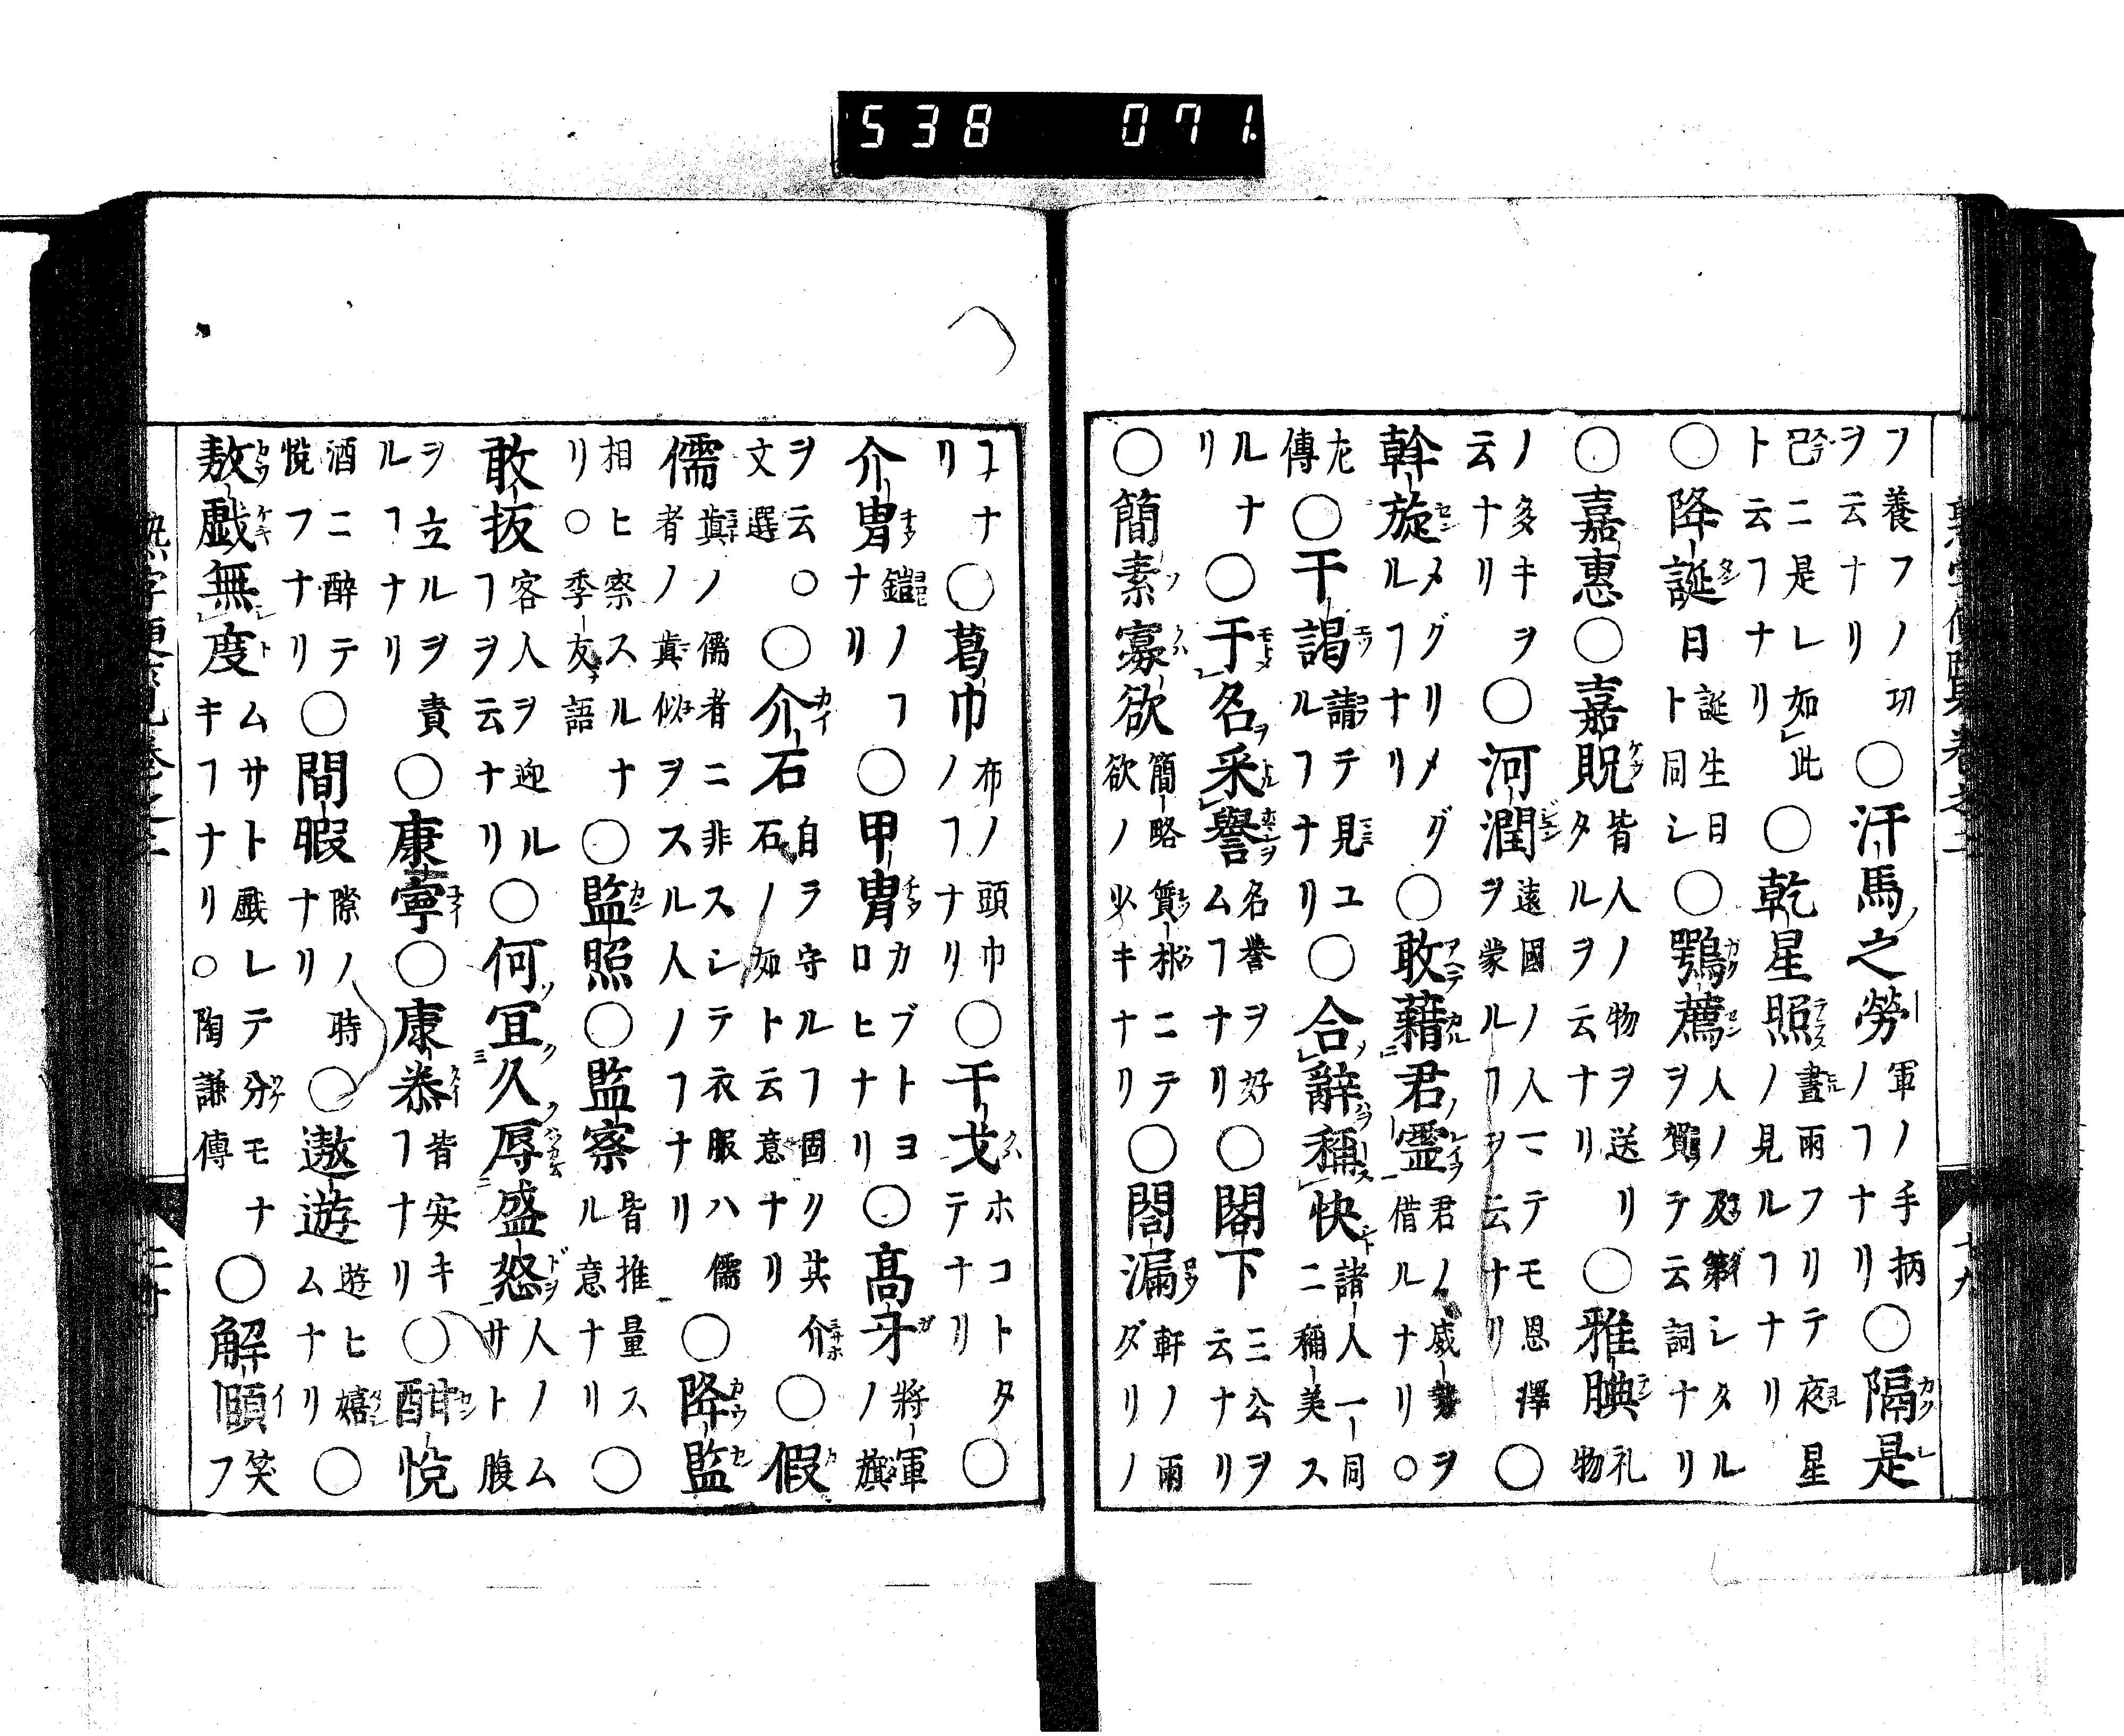 538 071.
フ養フノ功ヲ云ナリ○汗馬之勞軍ノ手柄ノヿナリ○隔是
已ニ是レ如此ト云フナリ○乾星照晝雨フリテ夜星ノ見ルヿナリ
○降誕日誕生日ト同シ○鶚薦人ノ及第シタルヲ賀テ云詞ナリ
○嘉惠○嘉貺皆人ノ物ヲ送リタルヲ云ナリ○雅腆礼物
ノ多キヲ云ナリ○河潤遠國ノ人マテモ恩澤ヲ蒙ルヿヲ云ナリ○
斡旋メグリメグルヿナリ○敢藉君靈君ノ威勢ヲ借ルナリ○
左傳○干謁請テ見ユルヿナリ○合辭稱快諸人一同ニ稱美ス
ルナリ○于名采譽名譽ヲ好ムヿナリ○閣下三公ヲ云ナリ
○簡素寡欲簡略質朴ニテ欲ノ少キナリ○閤漏軒ノ雨ダリノ
ヿナリ○葛巾布ノ頭巾ノヿナリ○干戈ホコトタテナリ○
介冑鎧ノヿナリ○甲冑カブトヨロヒナリ○高牙將軍ノ旗
ヲ云○文選○介石自ラ守ルヿ固クメ石ノ如ト云意ナリ其介○假
儒眞ノ儒者ニ非スシテ衣服ハ儒者ノ眞似ヲスル人ノヿナリ○降監
相ヒ察スルナリ○季友語○監照○監察皆推量スル意ナリ○
敢扳客人ヲ迎ルヿヲ云ナリ○何冝久辱盛怒人ノムサト腹
ヲ立ルヲ責ルヿナリ○康寧○康恭皆安キヿナリ○酣悦
酒ニ醉テ悦フナリ○間暇隙ノ時ナリ○遨遊遊ヒ嬉ムナリ○
敖戲無度ムサト戲レテ分モナキヿナリ○陶謙傳○解頤笑フ